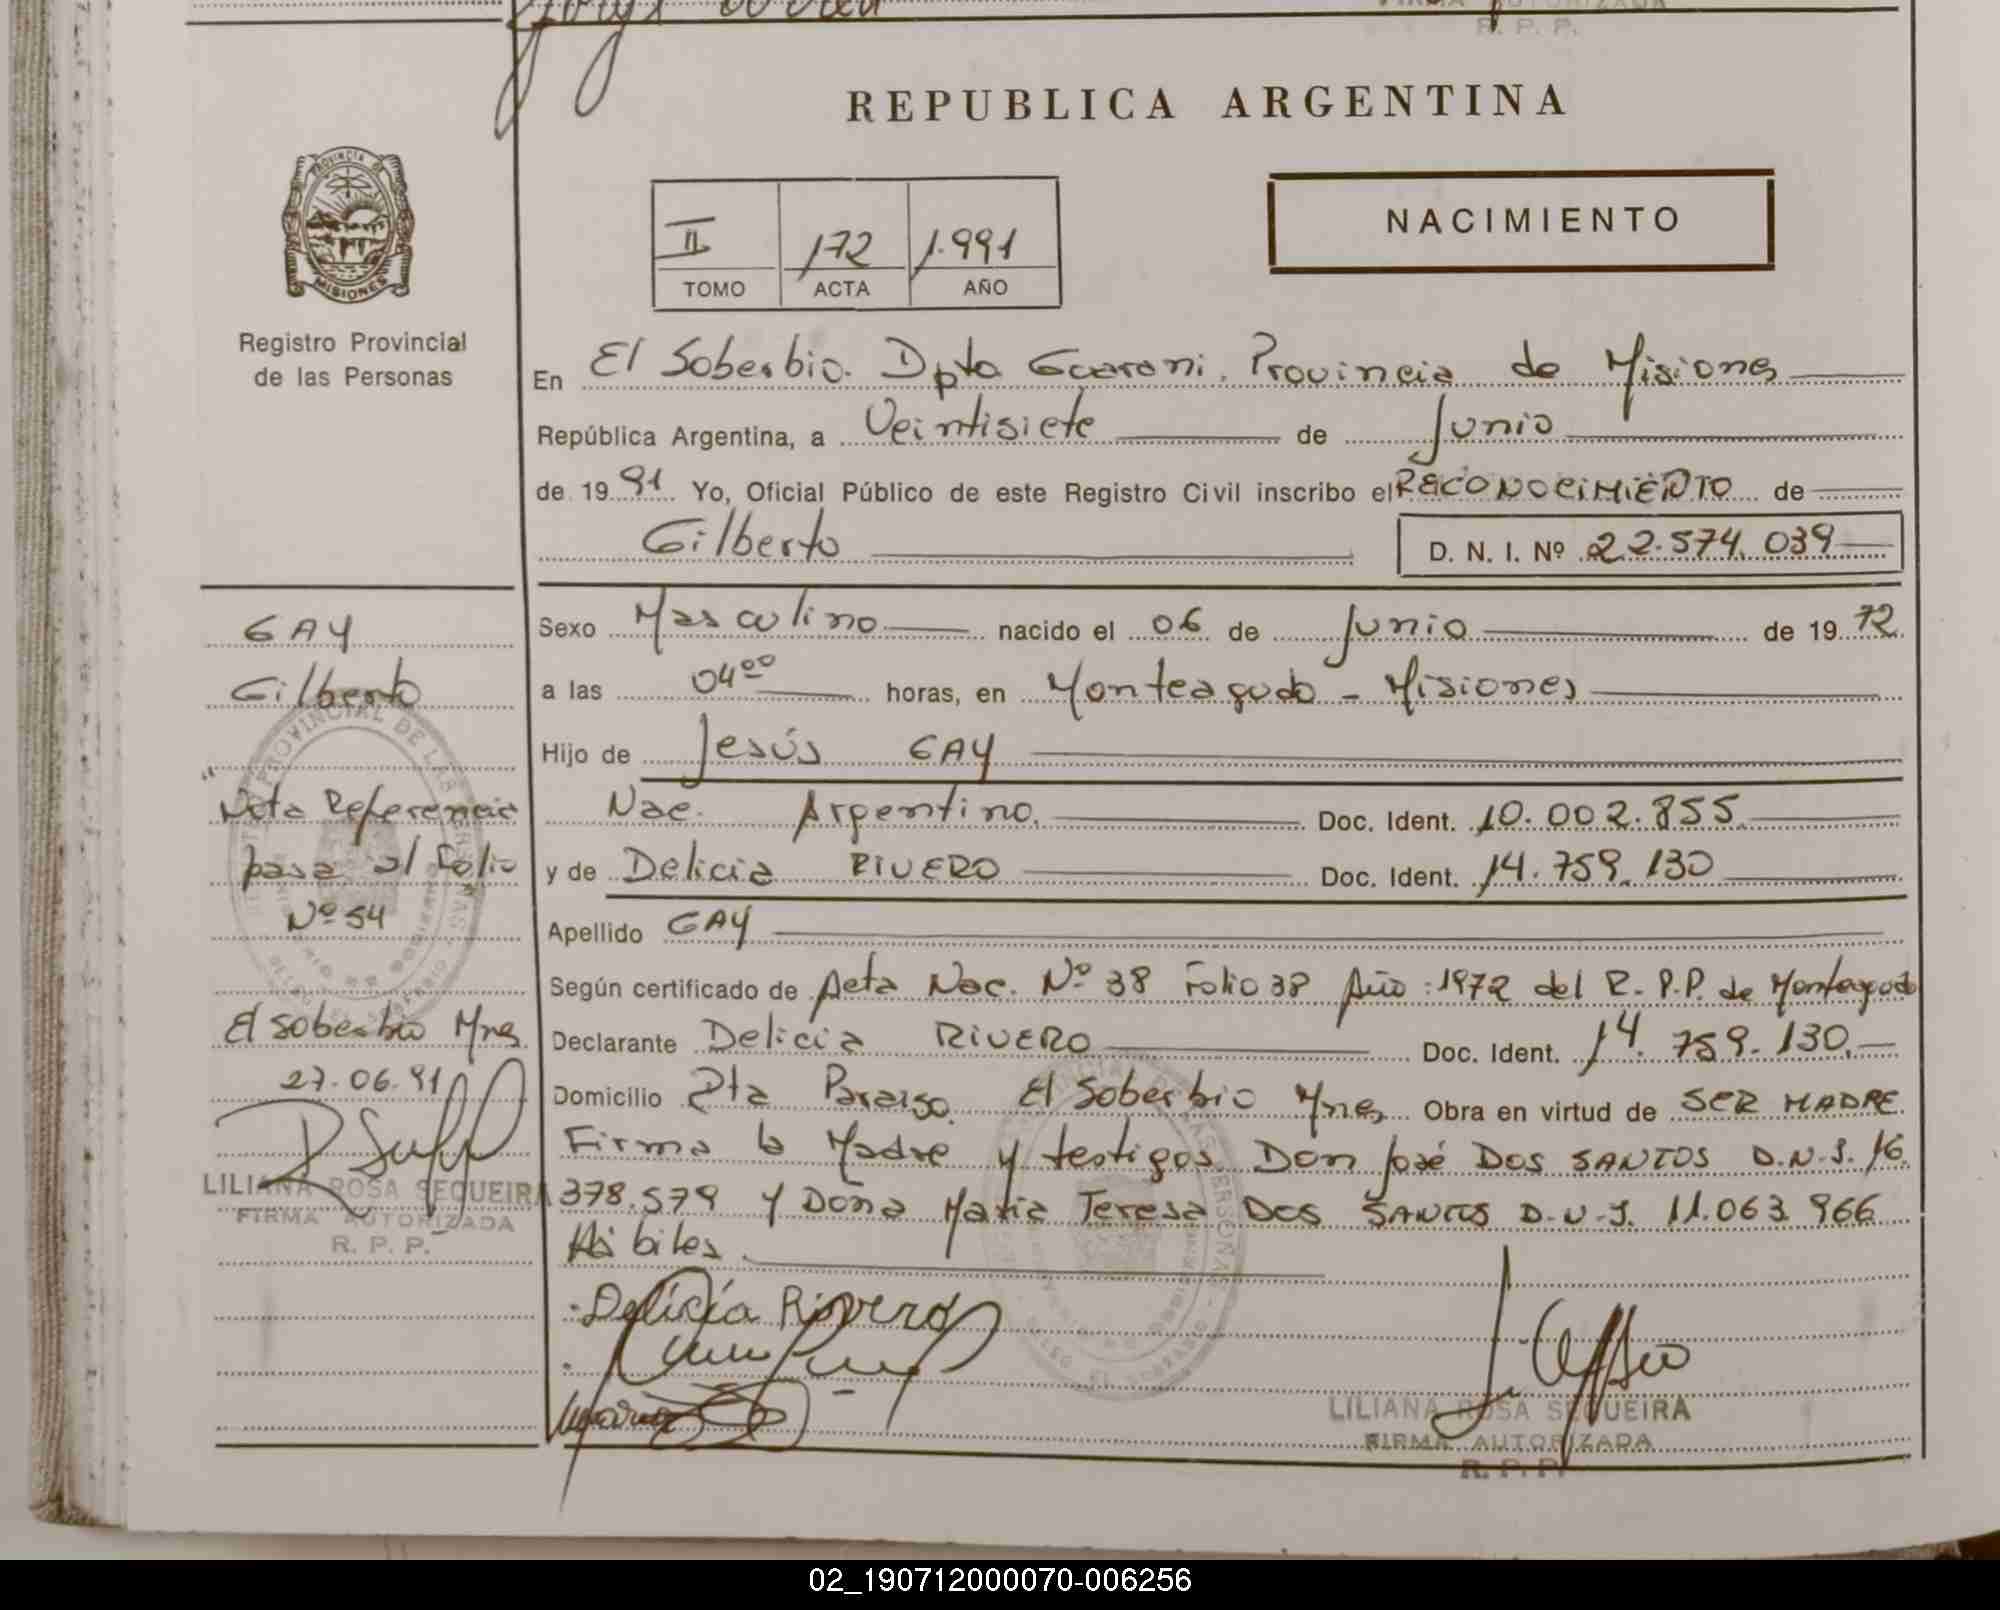 REPUBLICA ARGENTINA
PROVINCIA DE
MISIONES
Registro Provincial
de las Personas
II 172 1.991
TOMO ACTA AÑO
NACIMIENTO
En El Soberbio. Dpto Guarani. Provincia de Misiones
República Argentina, a Veintisiete de Junio
de 1991 Yo, Oficial Público de este Registro Civil inscribo el RECONOCIMIENTO de
Gilberto D. N. I. Nº 22.574.039
Sexo Masculino nacido el 06 de Junio de 1972
a las 04⁰⁰ horas, en Monteagudo - Misiones
Hijo de Jesús GAY
Nac. Argentino. Doc. Ident. 10.002.855
y de Delicia RIVERO Doc. Ident. 14.759.130
Apellido GAY
Según certificado de Acta Nac. Nº 38 Folio 38 Año: 1972 del R.P.P. de Monteagudo
Declarante Delicia RIVERO Doc. Ident. 14.759.130.
Domicilio Pta Paraiso. El Soberbio Mnes Obra en virtud de SER MADRE
Firma la Madre y testigos Don José DOS SANTOS D.N.I. 16.
378.579 y Doña Maria Teresa DOS SANTOS D.N.I. 11.063.966
Hábiles
Delicia Rivero
LILIANA ROSA SEQUEIRA
FIRMA AUTORIZADA
R. P. P.
GAY
Gilberto
Nota Referencia
pasa al Folio
Nº 54
El Soberbio Mnes
27.06.91
LILIANA ROSA SEQUEIRA
FIRMA AUTORIZADA
R. P. P.
02_190712000070-006256